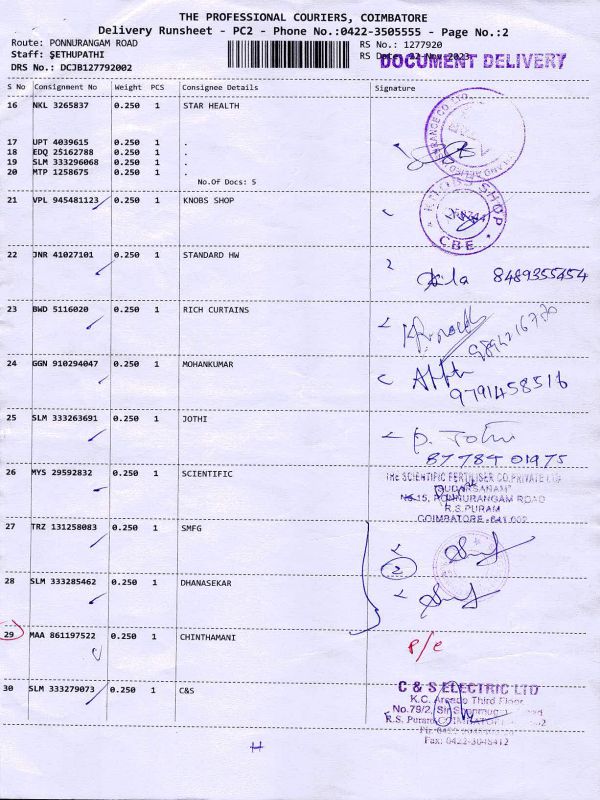 THE PROFESSIONAL COURIERS, COIMBATORE
Delivery Runsheet - PC2 - Phone No.:0422-3505555 - Page No.:2
Route: PONNURANGAM ROAD
RS No.: 1277920
Staff: SETHUPATHI
RS Date: 22-Nov-2023
DOCUMENT DELIVERY
DRS No.: DCJB127792002
S No Consignment No Weight PCS Consignee Details Signature
16 NKL 3265837 0.250 1 STAR HEALTH
17 UPT 4039615 0.250 1 .
18 EDQ 25162788 0.250 1 .
19 SLM 333296068 0.250 1 .
20 MTP 1258675 0.250 1 .
No.Of Docs: 5
21 VPL 945481123 0.250 1 KNOBS SHOP
KNOBS SHOP
CBE
22 JNR 41027101 0.250 1 STANDARD HW
8489355454
23 BWD 5116020 0.250 1 RICH CURTAINS
24 GGN 910294047 0.250 1 MOHANKUMAR
9791458516
25 SLM 333263691 0.250 1 JOTHI
P. Jothi
87784 01975
26 MYS 29592832 0.250 1 SCIENTIFIC
THE SCIENTIFIC FERTILISER CO.PRIVATE LTD
"SUDARSANAM"
No 15, PONNURANGAM ROAD
R.S.PURAM
COIMBATORE -641 002
27 TRZ 131258083 0.250 1 SMFG
2
28 SLM 333285462 0.250 1 DHANASEKAR
29 MAA 861197522 0.250 1 CHINTHAMANI
P/C
30 SLM 333279073 0.250 1 C&S
C & S ELECTRIC LTD
K.C. Arcade Third Floor
No.79/2, Sir Shanmugam Road
R.S. Puram COIMBATORE
Fax: 0422-3048412